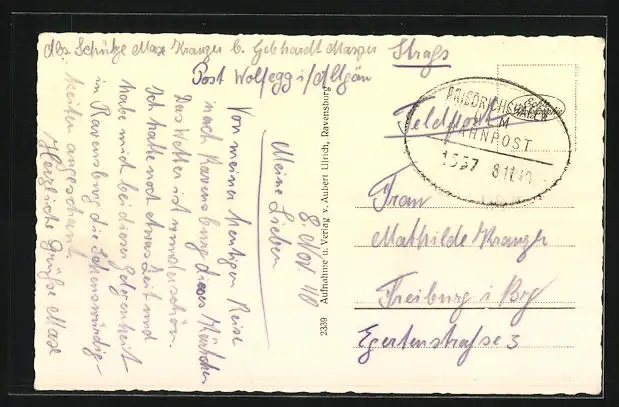 Abs Schütze Max Kranzer b. Gebhardt
Post Wolfegg i/Allgäu
8. Nov 40
Meine Lieben
Von meiner heutigen Reise
nach Ravensburg dieses Kärtchen
Das Wetter ist wunderschön.
Ich hatte noch etwas Zeit und
habe mich bei dieser Gelegenheit
in Ravensburg die Sehenswürdig-
keiten angeschaut.
Herzliche Grüße Max
2339 Aufnahme u. Verlag v. Aubert Ulrich, Ravensburg
Feldpost
BAHNPOST
1557 8 11 40
Echte
Frau
Mathilde Kranzer
Freiburg i Brg
Egertenstraße 3